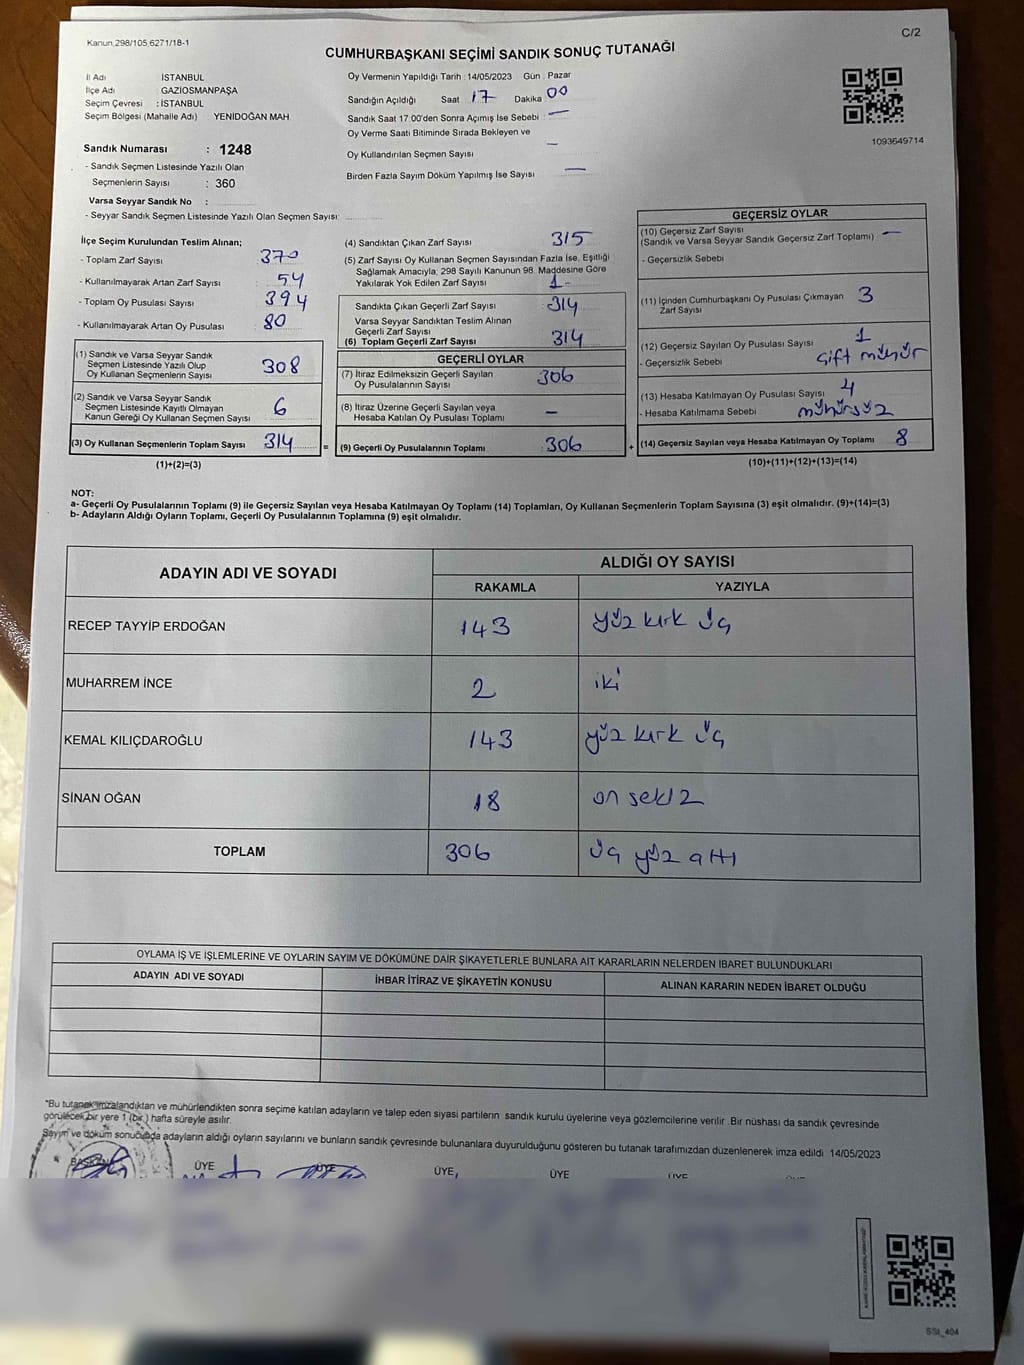 Kanun,298/105,6271/18-1
C/2
CUMHURBAŞKANI SEÇİMİ SANDIK SONUÇ TUTANAĞI
İl Adı : İSTANBUL
İlçe Adı : GAZİOSMANPAŞA
Seçim Çevresi : İSTANBUL
Seçim Bölgesi (Mahalle Adı) YENİDOĞAN MAH.
Sandık Numarası : 1248
- Sandık Seçmen Listesinde Yazılı Olan
Seçmenlerin Sayısı : 360
Varsa Seyyar Sandık No :
- Seyyar Sandık Seçmen Listesinde Yazılı Olan Seçmen Sayısı:
Oy Vermenin Yapıldığı Tarih : 14/05/2023 Gün : Pazar
Sandığın Açıldığı Saat 17 Dakika 00
Sandık Saat 17:00'den Sonra Açımış İse Sebebi : —
Oy Verme Saati Bitiminde Sırada Bekleyen ve
Oy Kullandırılan Seçmen Sayısı —
Birden Fazla Sayım Döküm Yapılmış İse Sayısı —
1093649714
İlçe Seçim Kurulundan Teslim Alınan;
- Toplam Zarf Sayısı : 370
- Kullanılmayarak Artan Zarf Sayısı : 54
- Toplam Oy Pusulası Sayısı : 394
- Kullanılmayarak Artan Oy Pusulası : 80
(1) Sandık ve Varsa Seyyar Sandık
Seçmen Listesinde Yazılı Olup
Oy Kullanan Seçmenlerin Sayısı 308
(2) Sandık ve Varsa Seyyar Sandık
Seçmen Listesinde Kayıtlı Olmayan
Kanun Gereği Oy Kullanan Seçmen Sayısı 6
(3) Oy Kullanan Seçmenlerin Toplam Sayısı 314 =
(1)+(2)=(3)
(4) Sandıktan Çıkan Zarf Sayısı 315
(5) Zarf Sayısı Oy Kullanan Seçmen Sayısından Fazla İse, Eşitliği
Sağlamak Amacıyla, 298 Sayılı Kanunun 98. Maddesine Göre
Yakılarak Yok Edilen Zarf Sayısı 1-
Sandıkta Çıkan Geçerli Zarf Sayısı 314
Varsa Seyyar Sandıktan Teslim Alınan
Geçerli Zarf Sayısı
(6) Toplam Geçerli Zarf Sayısı 314
GEÇERLİ OYLAR
(7) İtiraz Edilmeksizin Geçerli Sayılan
Oy Pusulalarının Sayısı 306
(8) İtiraz Üzerine Geçerli Sayılan veya
Hesaba Katılan Oy Pusulası Toplamı —
(9) Geçerli Oy Pusulalarının Toplamı : 306 +
GEÇERSİZ OYLAR
(10) Geçersiz Zarf Sayısı
(Sandık ve Varsa Seyyar Sandık Geçersiz Zarf Toplamı) —
- Geçersizlik Sebebi
(11) İçinden Cumhurbaşkanı Oy Pusulası Çıkmayan 3
Zarf Sayısı
(12) Geçersiz Sayılan Oy Pusulası Sayısı 1
- Geçersizlik Sebebi : Çift mühür
(13) Hesaba Katılmayan Oy Pusulası Sayısı 4
- Hesaba Katılmama Sebebi mühürsüz
(14) Geçersiz Sayılan veya Hesaba Katılmayan Oy Toplamı 8
(10)+(11)+(12)+(13)=(14)
NOT:
a- Geçerli Oy Pusulalarının Toplamı (9) ile Geçersiz Sayılan veya Hesaba Katılmayan Oy Toplamı (14) Toplamları, Oy Kullanan Seçmenlerin Toplam Sayısına (3) eşit olmalıdır. (9)+(14)=(3)
b- Adayların Aldığı Oyların Toplamı, Geçerli Oy Pusulalarının Toplamına (9) eşit olmalıdır.
ADAYIN ADI VE SOYADI
ALDIĞI OY SAYISI
RAKAMLA YAZIYLA
RECEP TAYYİP ERDOĞAN 143 yüz kırk üç
MUHARREM İNCE 2 iki
KEMAL KILIÇDAROĞLU 143 yüz kırk üç
SİNAN OĞAN 18 on sekiz
TOPLAM 306 üç yüz altı
OYLAMA İŞ VE İŞLEMLERİNE VE OYLARIN SAYIM VE DÖKÜMÜNE DAİR ŞİKAYETLERLE BUNLARA AİT KARARLARIN NELERDEN İBARET BULUNDUKLARI
ADAYIN ADI VE SOYADI İHBAR İTİRAZ VE ŞİKAYETİN KONUSU ALINAN KARARIN NEDEN İBARET OLDUĞU
"Bu tutanak imzalandıktan ve mühürlendikten sonra seçime katılan adayların ve talep eden siyasi partilerin sandık kurulu üyelerine veya gözlemcilerine verilir. Bir nüshası da sandık çevresinde
görülecek bir yere 1 (bir ) hafta süreyle asılır.
Sayım ve döküm sonucunda adayların aldığı oyların sayılarını ve bunların sandık çevresinde bulunanlara duyurulduğunu gösteren bu tutanak tarafımızdan düzenlenerek imza edildi 14/05/2023
BAŞKAN ÜYE ÜYE ÜYE ÜYE ÜYE
SSI_404